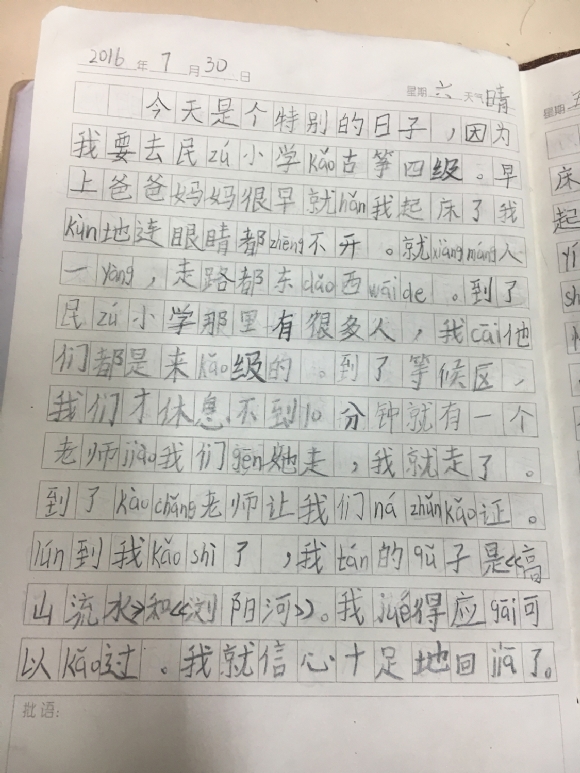 2016年7月30日 星期六 天气晴
今天是个特别的日子，因为
我要去民zú小学kǎo古筝四级。早
上爸爸妈妈很早就hǎn我起床了我
kùn地连眼睛都zhēng不开。就xiàng máng人
一yàng，走路都东dǎo西wāi de。到了
民zú小学那里有很多人，我cāi他
们都是来kǎo级的。到了等候区，
我们才休息不到10分钟就有一个
老师jiào我们gēn她走，我就走了。
到了kǎo chǎng老师让我们ná zhǔn kǎo证。
lún到我kǎo shì了，我tán的qǔ子是《高
山流水》和《浏阳河》。我jué得应gāi可
以kǎo过。我就信心十足地回jiā了。
批语:
星期五
床
起
yí